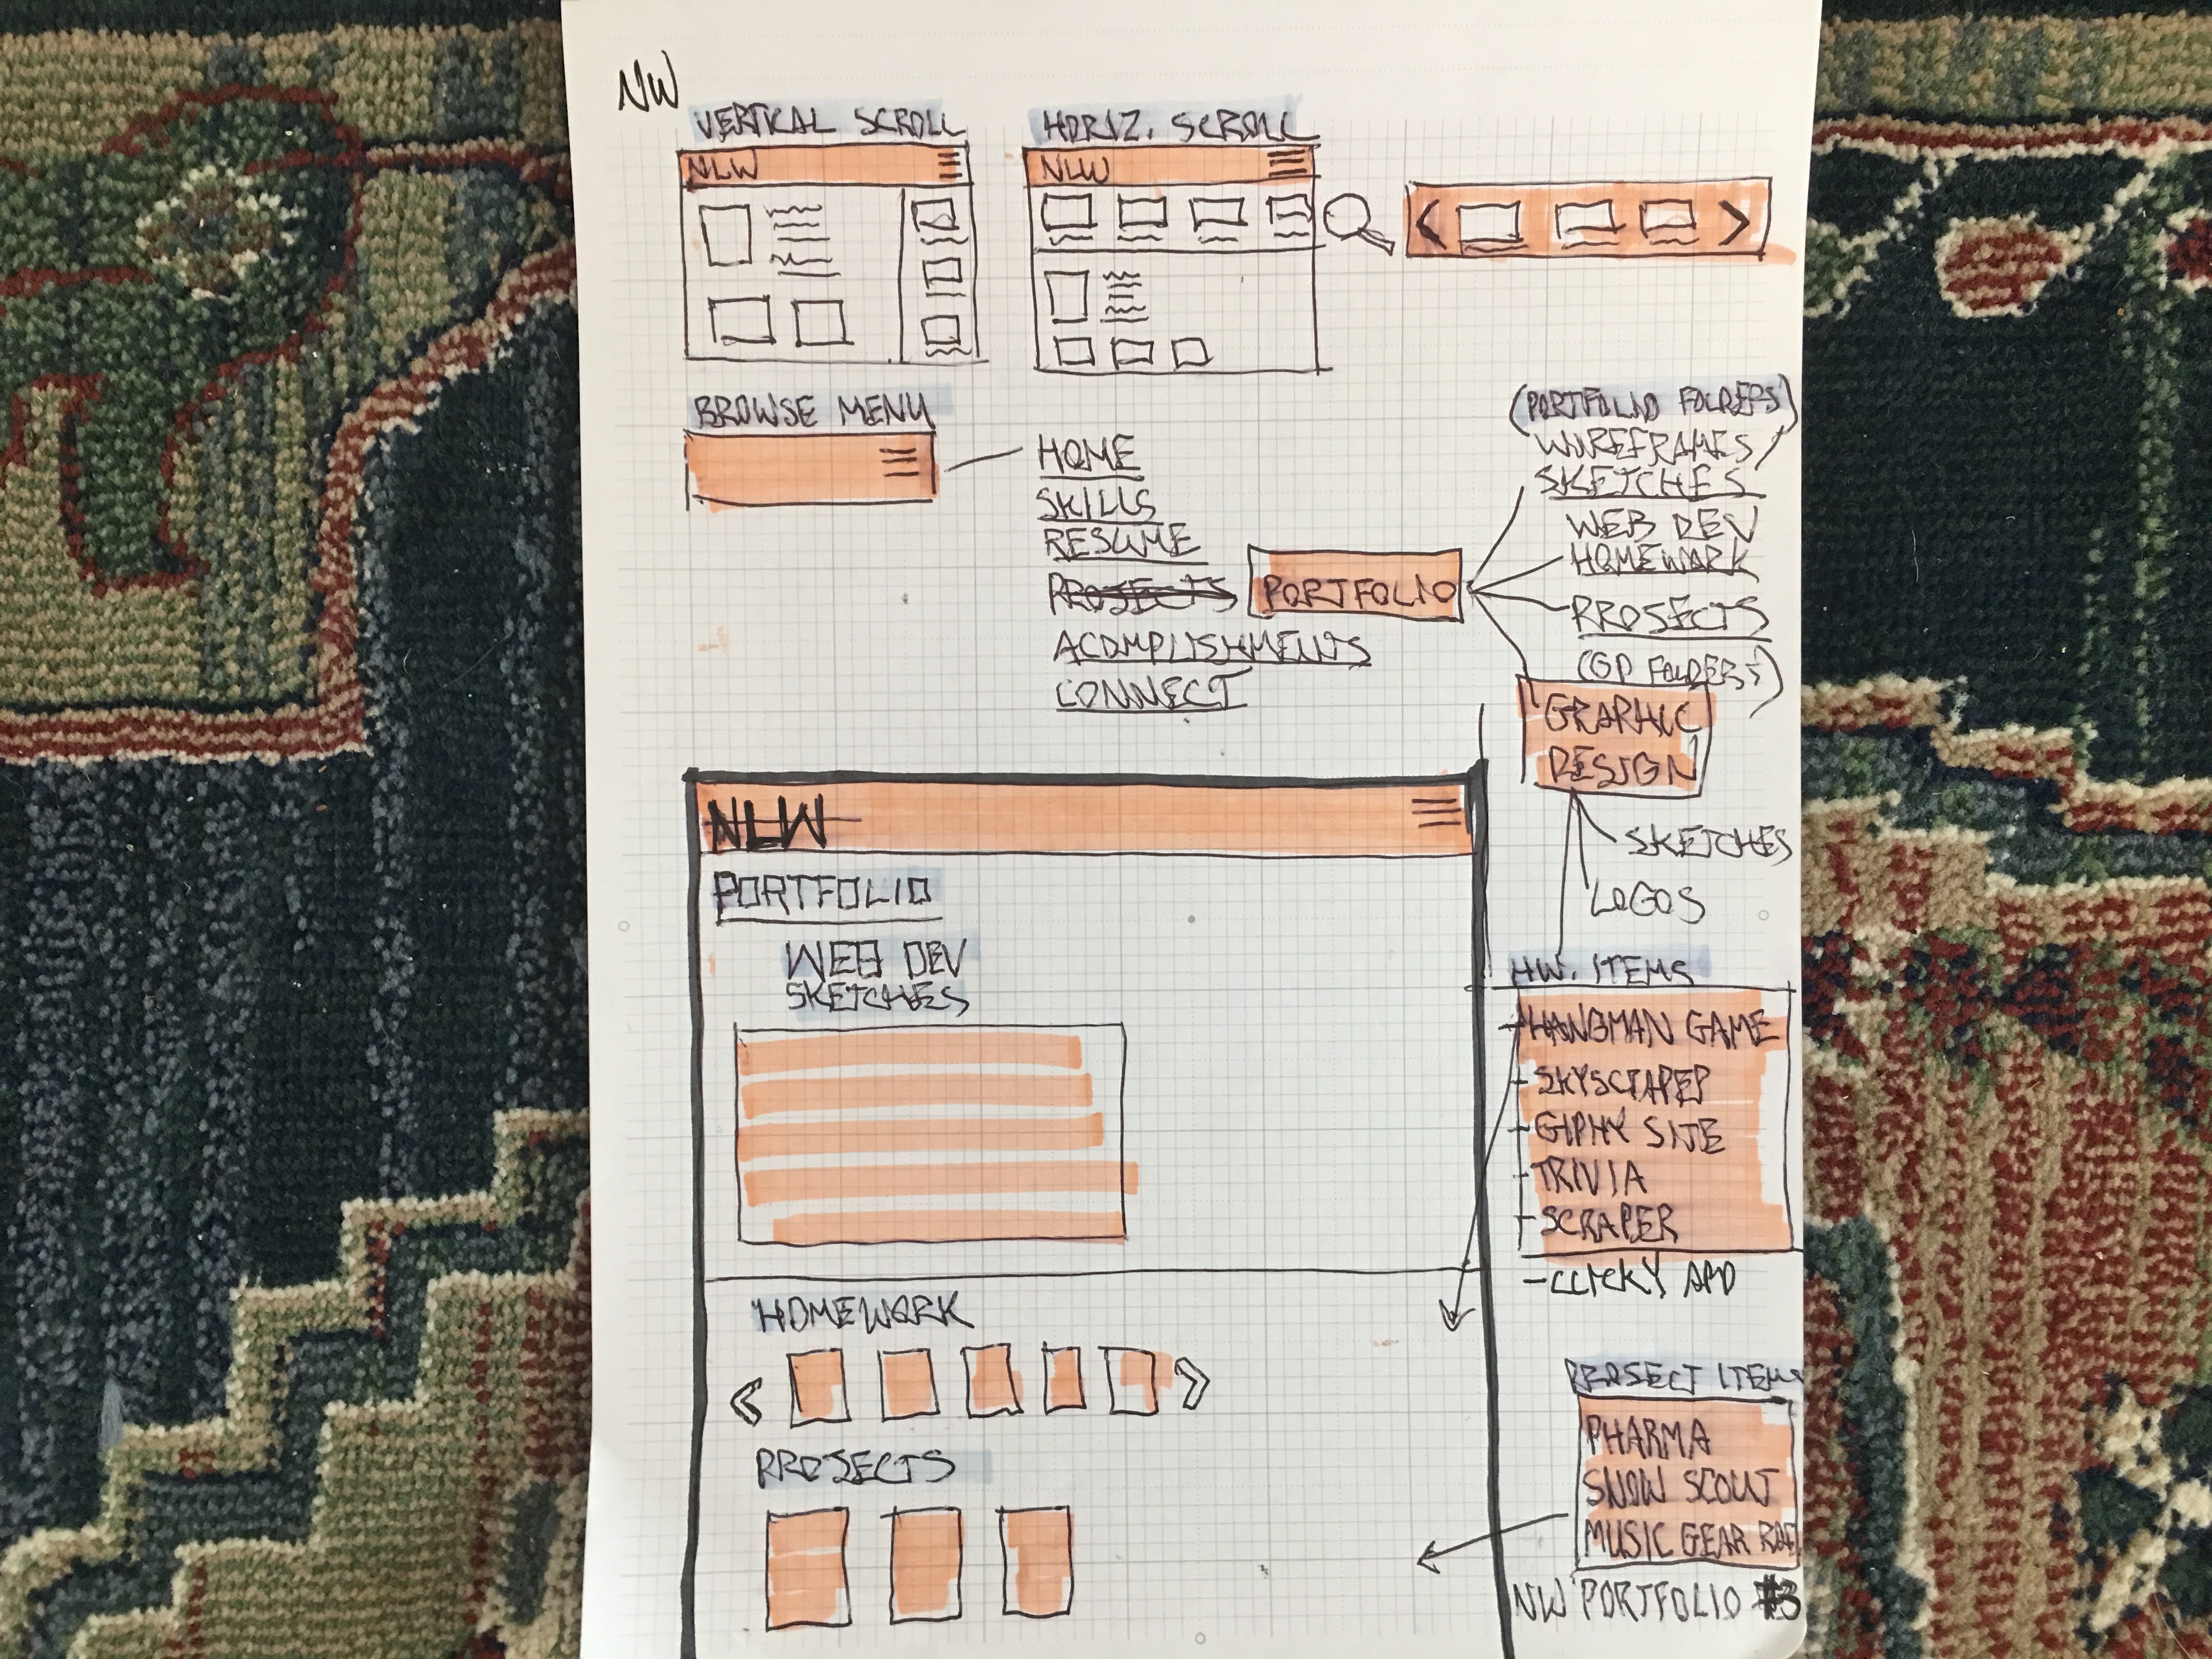 NW
VERTICAL SCROLL
NLW
HORIZ. SCROLL
NLW
BROWSE MENU
HOME
SKILLS
RESUME
PROJECTS
PORTFOLIO
ACOMPLISHMENTS
CONNECT
(PORTFOLIO FOLDERS)
WIREFRAMES/
SKETCHES
WEB DEV
HOMEWORK
PROJECTS
(GD FOLDERS)
GRAPHIC
DESIGN
SKETCHES
LOGOS
NLW
PORTFOLIO
WEB DEV
SKETCHES
HOMEWORK
PROJECTS
HW. ITEMS
-HANGMAN GAME
-SKYSCRAPER
-GIPHY SITE
-TRIVIA
-SCRAPER
-CLICKY APP
PROJECT ITEMS
PHARMA
SNOW SCOUT
MUSIC GEAR
NW PORTFOLIO #3